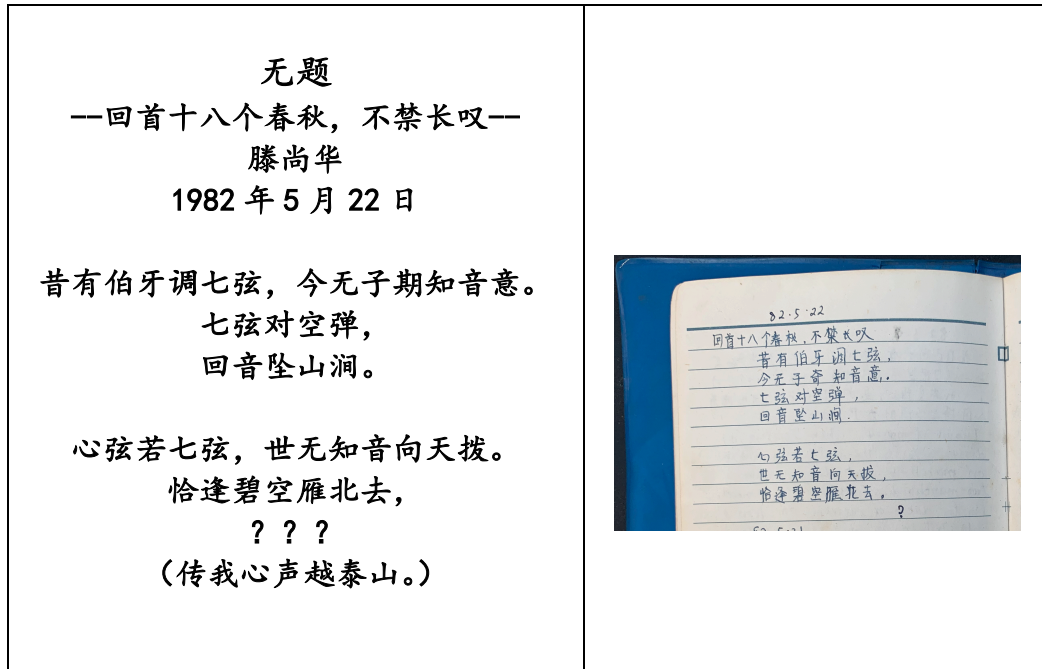 无题
--回首十八个春秋，不禁长叹--
滕尚华
1982 年 5 月 22 日
昔有伯牙调七弦，今无子期知音意。
七弦对空弹，
回音坠山涧。
心弦若七弦，世无知音向天拨。
恰逢碧空雁北去，
？？？
（传我心声越泰山。）
82·5·22
回首十八个春秋，不禁长叹
昔有伯牙调七弦，
今无子奇知音意。
七弦对空弹，
回音坠山涧.
心弦若七弦，
世无知音向天拨，
恰逢碧空雁北去。
?